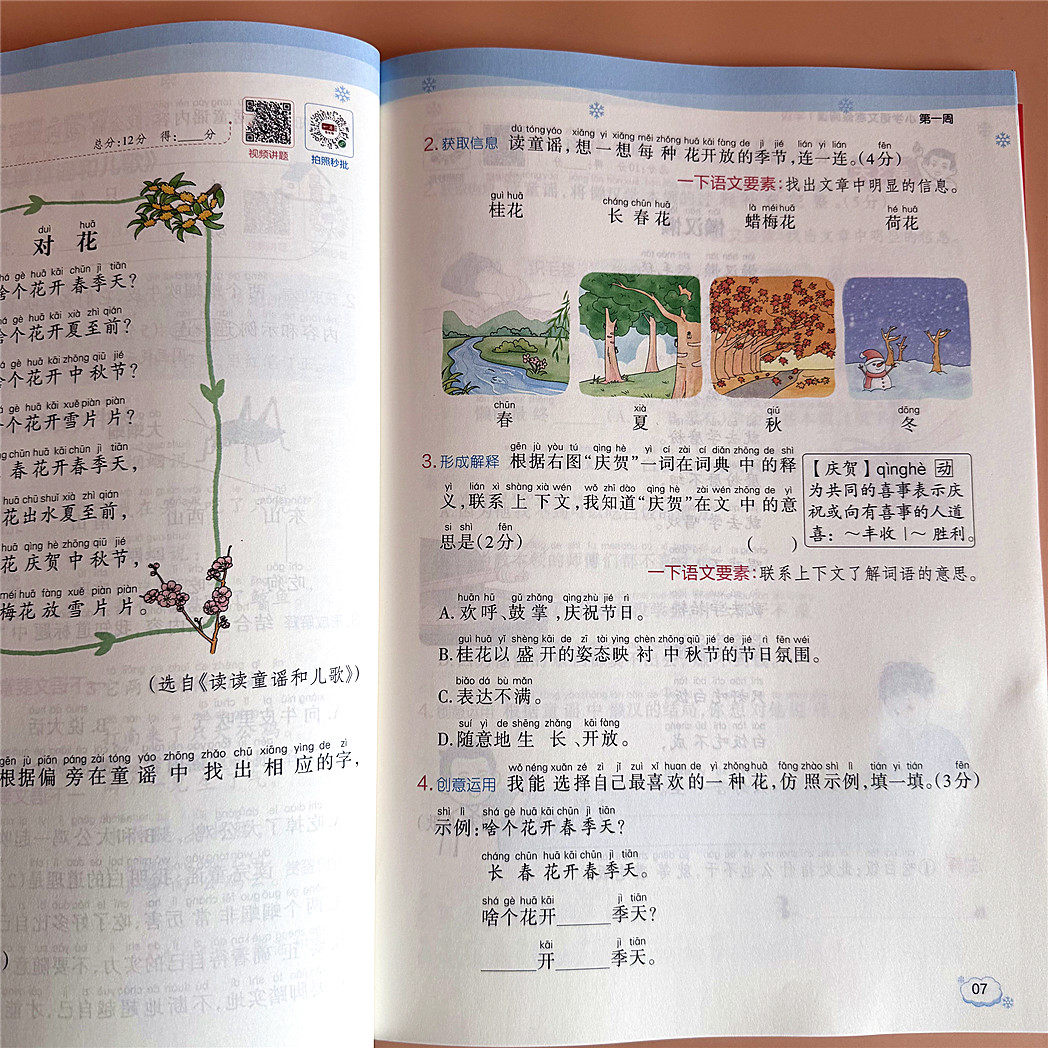 总分:12分 得:____分
视频讲题
拍照秒批
duì huā
对花
shá gè huā kāi chūn jì tiān
啥个花开春季天?
gè huā kāi xià zhì qián
个花开夏至前?
gè huā kāi zhōng qiū jié
个花开中秋节?
gè huā kāi xuě piàn piàn
个花开雪片片?
chūn huā kāi chūn jì tiān
春花开春季天,
huā chū shuǐ xià zhì qián
花出水夏至前,
huā qìng hè zhōng qiū jié
花庆贺中秋节,
méi huā fàng xuě piàn piàn
梅花放雪片片。
(选自《读读童谣和儿歌》)
gēn jù piān páng zài tóng yáo zhōng zhǎo chū xiāng yìng de zì
根据偏旁在童谣中找出相应的字,
第一周
dú tóng yáo xiǎng yi xiǎng měi zhǒng huā kāi fàng de jì jié lián yi lián fēn
2.获取信息 读童谣,想一想每种花开放的季节,连一连。(4分)
一下语文要素:找出文章中明显的信息。
guì huā cháng chūn huā là méi huā hé huā
桂花 长春花 蜡梅花 荷花
chūn xià qiū dōng
春 夏 秋 冬
gēn jù yòu tú qìng hè yì cí zài cí diǎn zhōng de shì
3.形成解释 根据右图“庆贺”一词在词典中的释
yì lián xì shàng xià wén wǒ zhī dào qìng hè zài wén zhōng de yì
义,联系上下文,我知道“庆贺”在文中的意
si shì fēn
思是(2分) ( )
【庆贺】qìnghè 动
为共同的喜事表示庆
祝或向有喜事的人道
喜:~丰收|~胜利。
一下语文要素:联系上下文了解词语的意思。
huān hū gǔ zhǎng qìng zhù jié rì
A.欢呼、鼓掌,庆祝节日。
guì huā yǐ shèng kāi de zī tài yìng chèn zhōng qiū jié de jié rì fēn wéi
B.桂花以盛开的姿态映衬中秋节的节日氛围。
biǎo dá bù mǎn
C.表达不满。
suí yì de shēng zhǎng kāi fàng
D.随意地生长、开放。
wǒ néng xuǎn zé zì jǐ zuì xǐ huan de yì zhǒng huā fǎng zhào shì lì tián yi tián fēn
4.创意运用 我能选择自己最喜欢的一种花,仿照示例,填一填。(3分)
shì lì shá gè huā kāi chūn jì tiān
示例:啥个花开春季天?
cháng chūn huā kāi chūn jì tiān
长春花开春季天。
shá gè huā kāi jì tiān
啥个花开____季天?
kāi jì tiān
____开____季天。
07